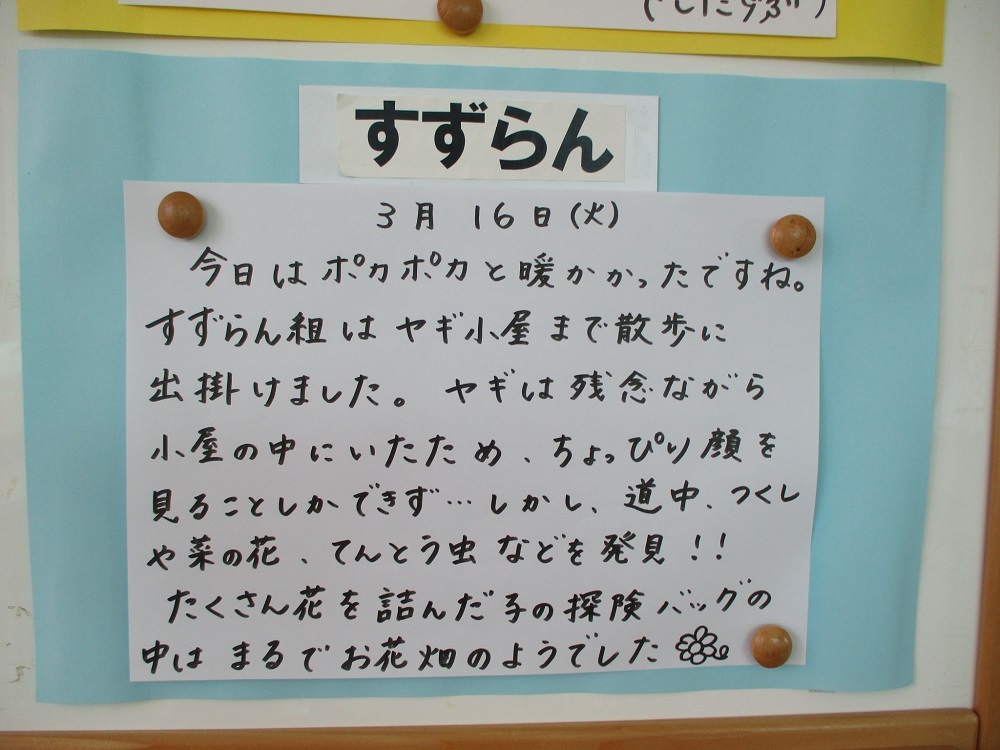 (したらぶ)
すずらん
3月 16日(火)
今日はポカポカと暖かかったですね。
すずらん組はヤギ小屋まで散歩に
出掛けました。ヤギは残念ながら
小屋の中にいたため、ちょっぴり顔を
見ることしかできず…しかし、道中、つくし
や菜の花、てんとう虫などを発見!!
たくさん花を詰んだ子の探険バッグの
中はまるでお花畑のようでした